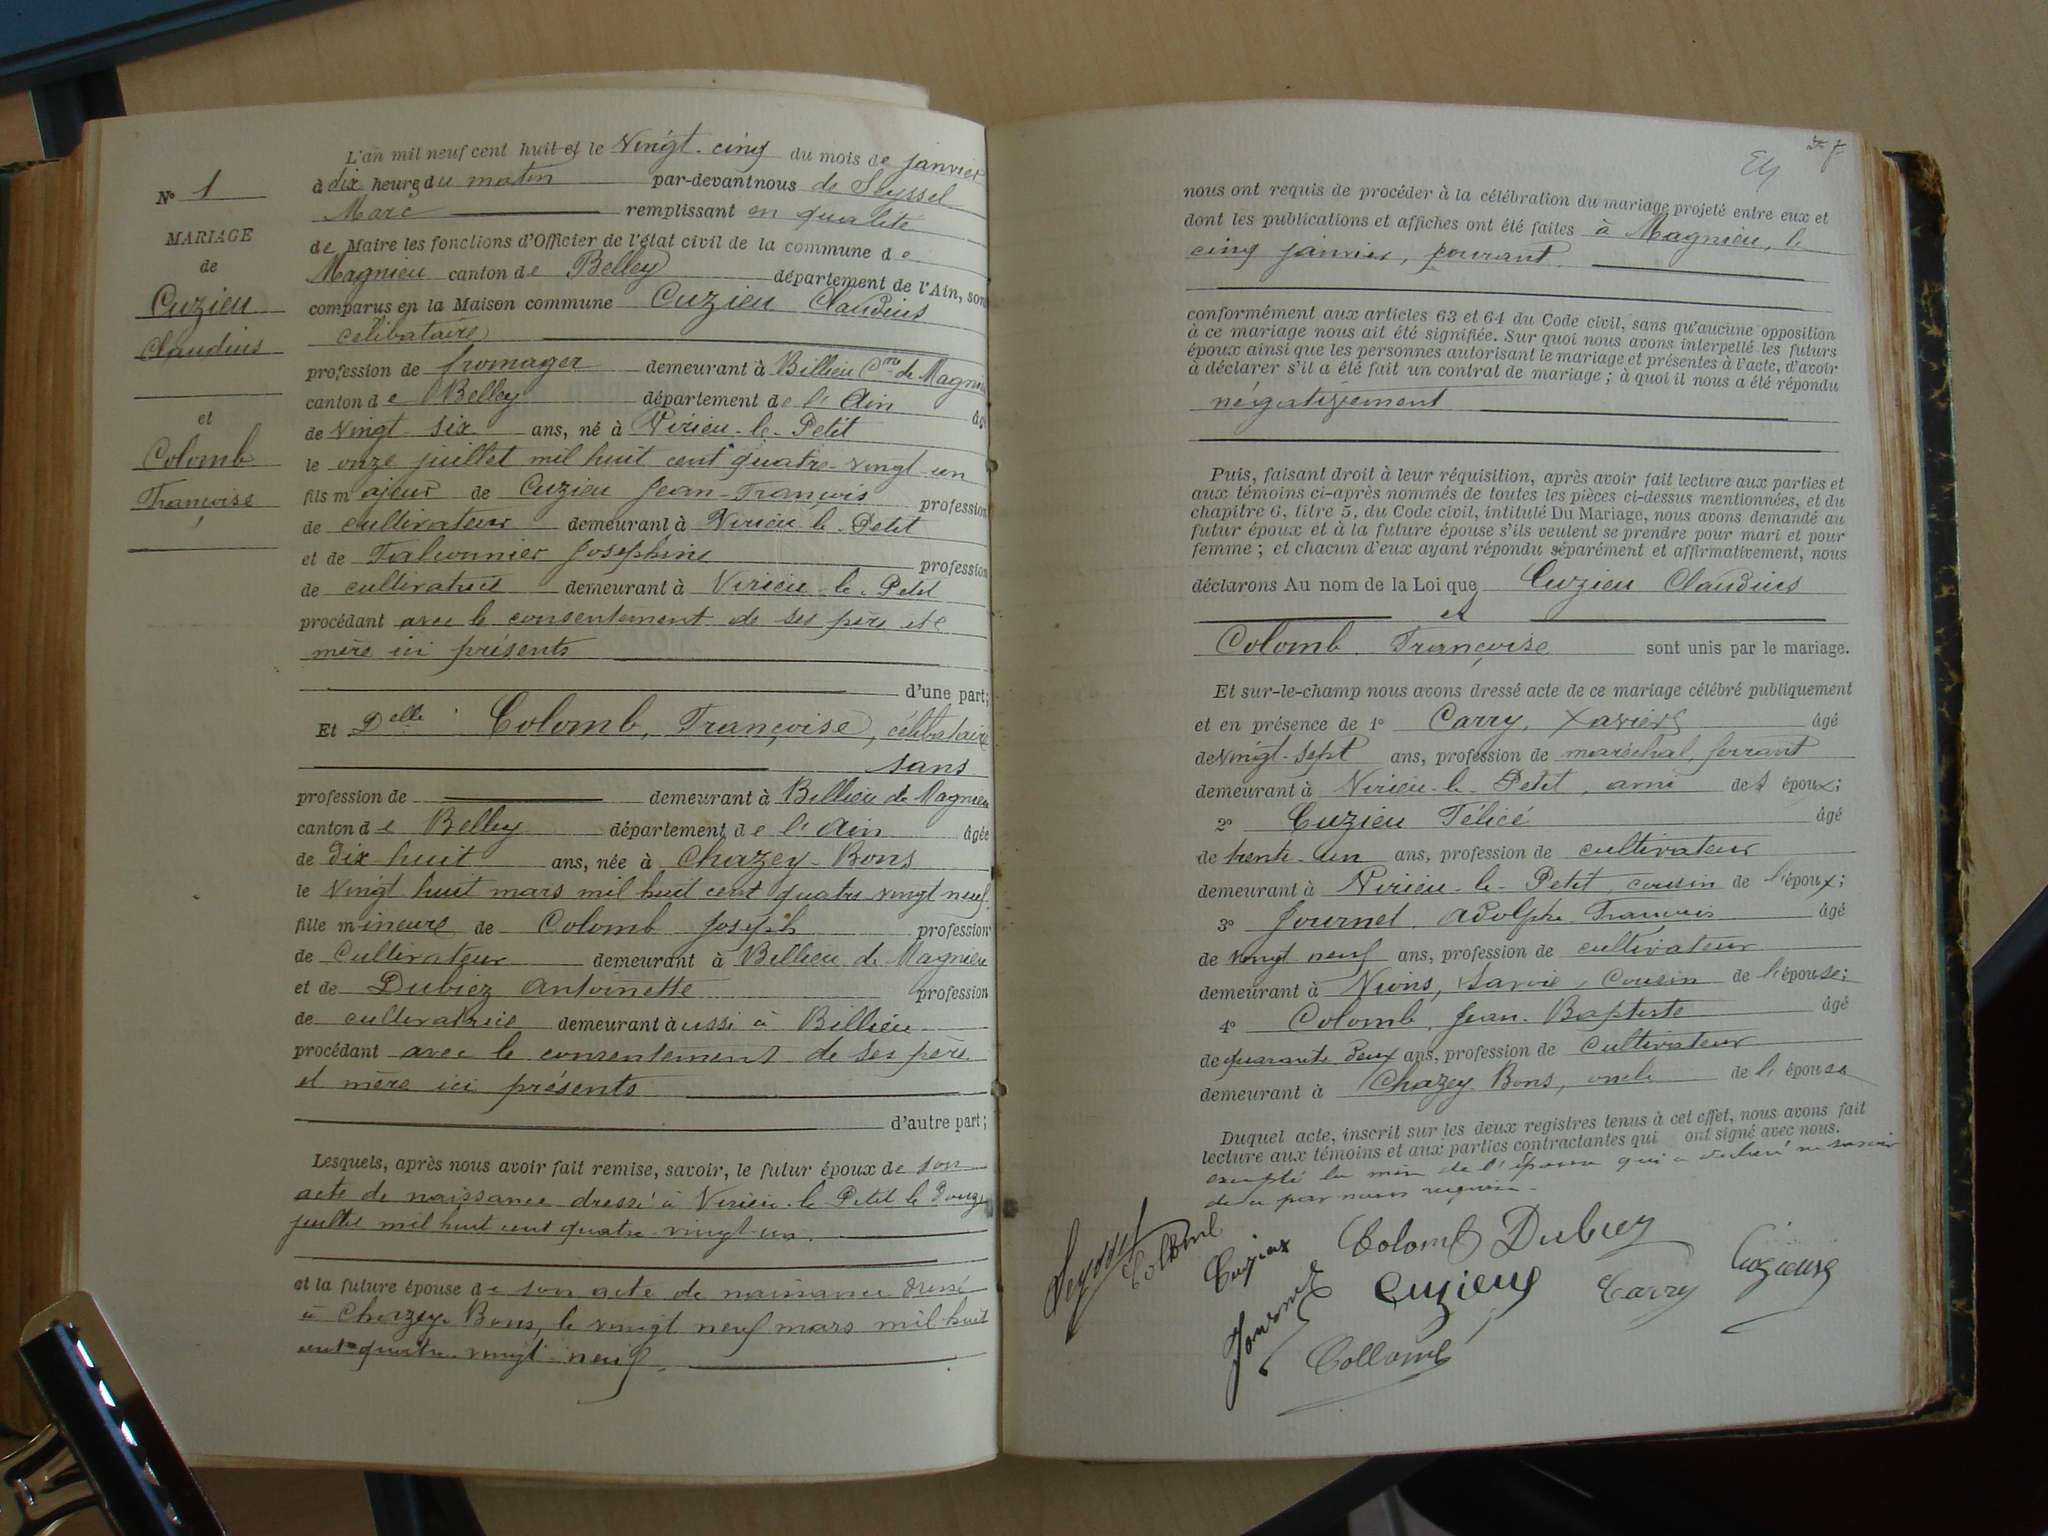 L'an mil neuf cent huit et le Vingt-cinq du mois de janvier
N° 1
à dix heures du matin par-devant nous de Seyssel
Marc remplissant en qualité
MARIAGE
de Maire les fonctions d'Officier de l'état civil de la commune de
de
Magnieu canton de Belley département de l'Ain, sont
Cuzieu
comparus en la Maison commune Cuzieu Claudius
Claudius
célibataire
profession de fromager demeurant à Billieu Cne de Magnieu
canton de Belley département de l'Ain âgé
et
de Vingt-six ans, né à Virieu-le-Petit
Colomb
le onze juillet mil huit cent quatre-vingt-un
Françoise
fils majeur de Cuzieu Jean-François profession
de cultivateur demeurant à Virieu-le-Petit
et de Falconnier Joséphine profession
de cultivatrice demeurant à Virieu-le-Petit
procédant avec le consentement de ses père et
mère ici présents
d'une part;
Et Delle Colomb, Françoise, célibataire
sans
profession de demeurant à Billieu de Magnieu
canton de Belley département de l'Ain âgée
de dix huit ans, née à Chazey-Bons
le vingt huit mars mil huit cent quatre vingt neuf
fille mineure de Colomb Joseph profession
de Cultivateur demeurant à Billieu de Magnieu
et de Dubiez Antoinette profession
de cultivatrice demeurant aussi à Billieu
procédant avec le consentement de ses père
et mère ici présents
d'autre part;
Lesquels, après nous avoir fait remise, savoir, le futur époux de son
acte de naissance dressé à Virieu-le-Petit le douze
juillet mil huit cent quatre-vingt-un.
et la future épouse de son acte de naissance dressé
à Chazey-Bons, le vingt neuf mars mil huit
cent quatre-vingt-neuf.
nous ont requis de procéder à la célébration du mariage projeté entre eux et
dont les publications et affiches ont été faites à Magnieu, le
cinq janvier, courant.
conformément aux articles 63 et 64 du Code civil, sans qu'aucune opposition
à ce mariage nous ait été signifiée. Sur quoi nous avons interpellé les futurs
époux ainsi que les personnes autorisant le mariage et présentes à l'acte, d'avoir
à déclarer s'il a été fait un contrat de mariage; à quoi il nous a été répondu
négativement
Puis, faisant droit à leur réquisition, après avoir fait lecture aux parties et
aux témoins ci-après nommés de toutes les pièces ci-dessus mentionnées, et du
chapitre 6, titre 5, du Code civil, intitulé Du Mariage, nous avons demandé au
futur époux et à la future épouse s'ils veulent se prendre pour mari et pour
femme; et chacun d'eux ayant répondu séparément et affirmativement, nous
déclarons Au nom de la Loi que Cuzieu Claudius
et
Colomb Françoise sont unis par le mariage.
Et sur-le-champ nous avons dressé acte de ce mariage célébré publiquement
et en présence de 1° Carry, Xavier âgé
de vingt-sept ans, profession de maréchal ferrant
demeurant à Virieu-le-Petit, ami des époux;
2° Cuzieu Félicé âgé
de trente-un ans, profession de cultivateur
demeurant à Virieu-le-Petit, cousin de l'époux;
3° Journet, Adolphe François âgé
de vingt neuf ans, profession de cultivateur
demeurant à Nions, Savoie, cousin de l'épouse;
4° Colomb, Jean-Baptiste âgé
de quarante deux ans, profession de Cultivateur
demeurant à Chazey Bons, oncle de l'épouse
Duquel acte, inscrit sur les deux registres tenus à cet effet, nous avons fait
lecture aux témoins et aux parties contractantes qui ont signé avec nous.
excepté la mère de l'époux qui a déclaré ne savoir
de ce par nous requise.
Seyssel Colomb Cuzieu Colomb Dubiez
Journet Cuzieu Carry Cuzieux
Collomb